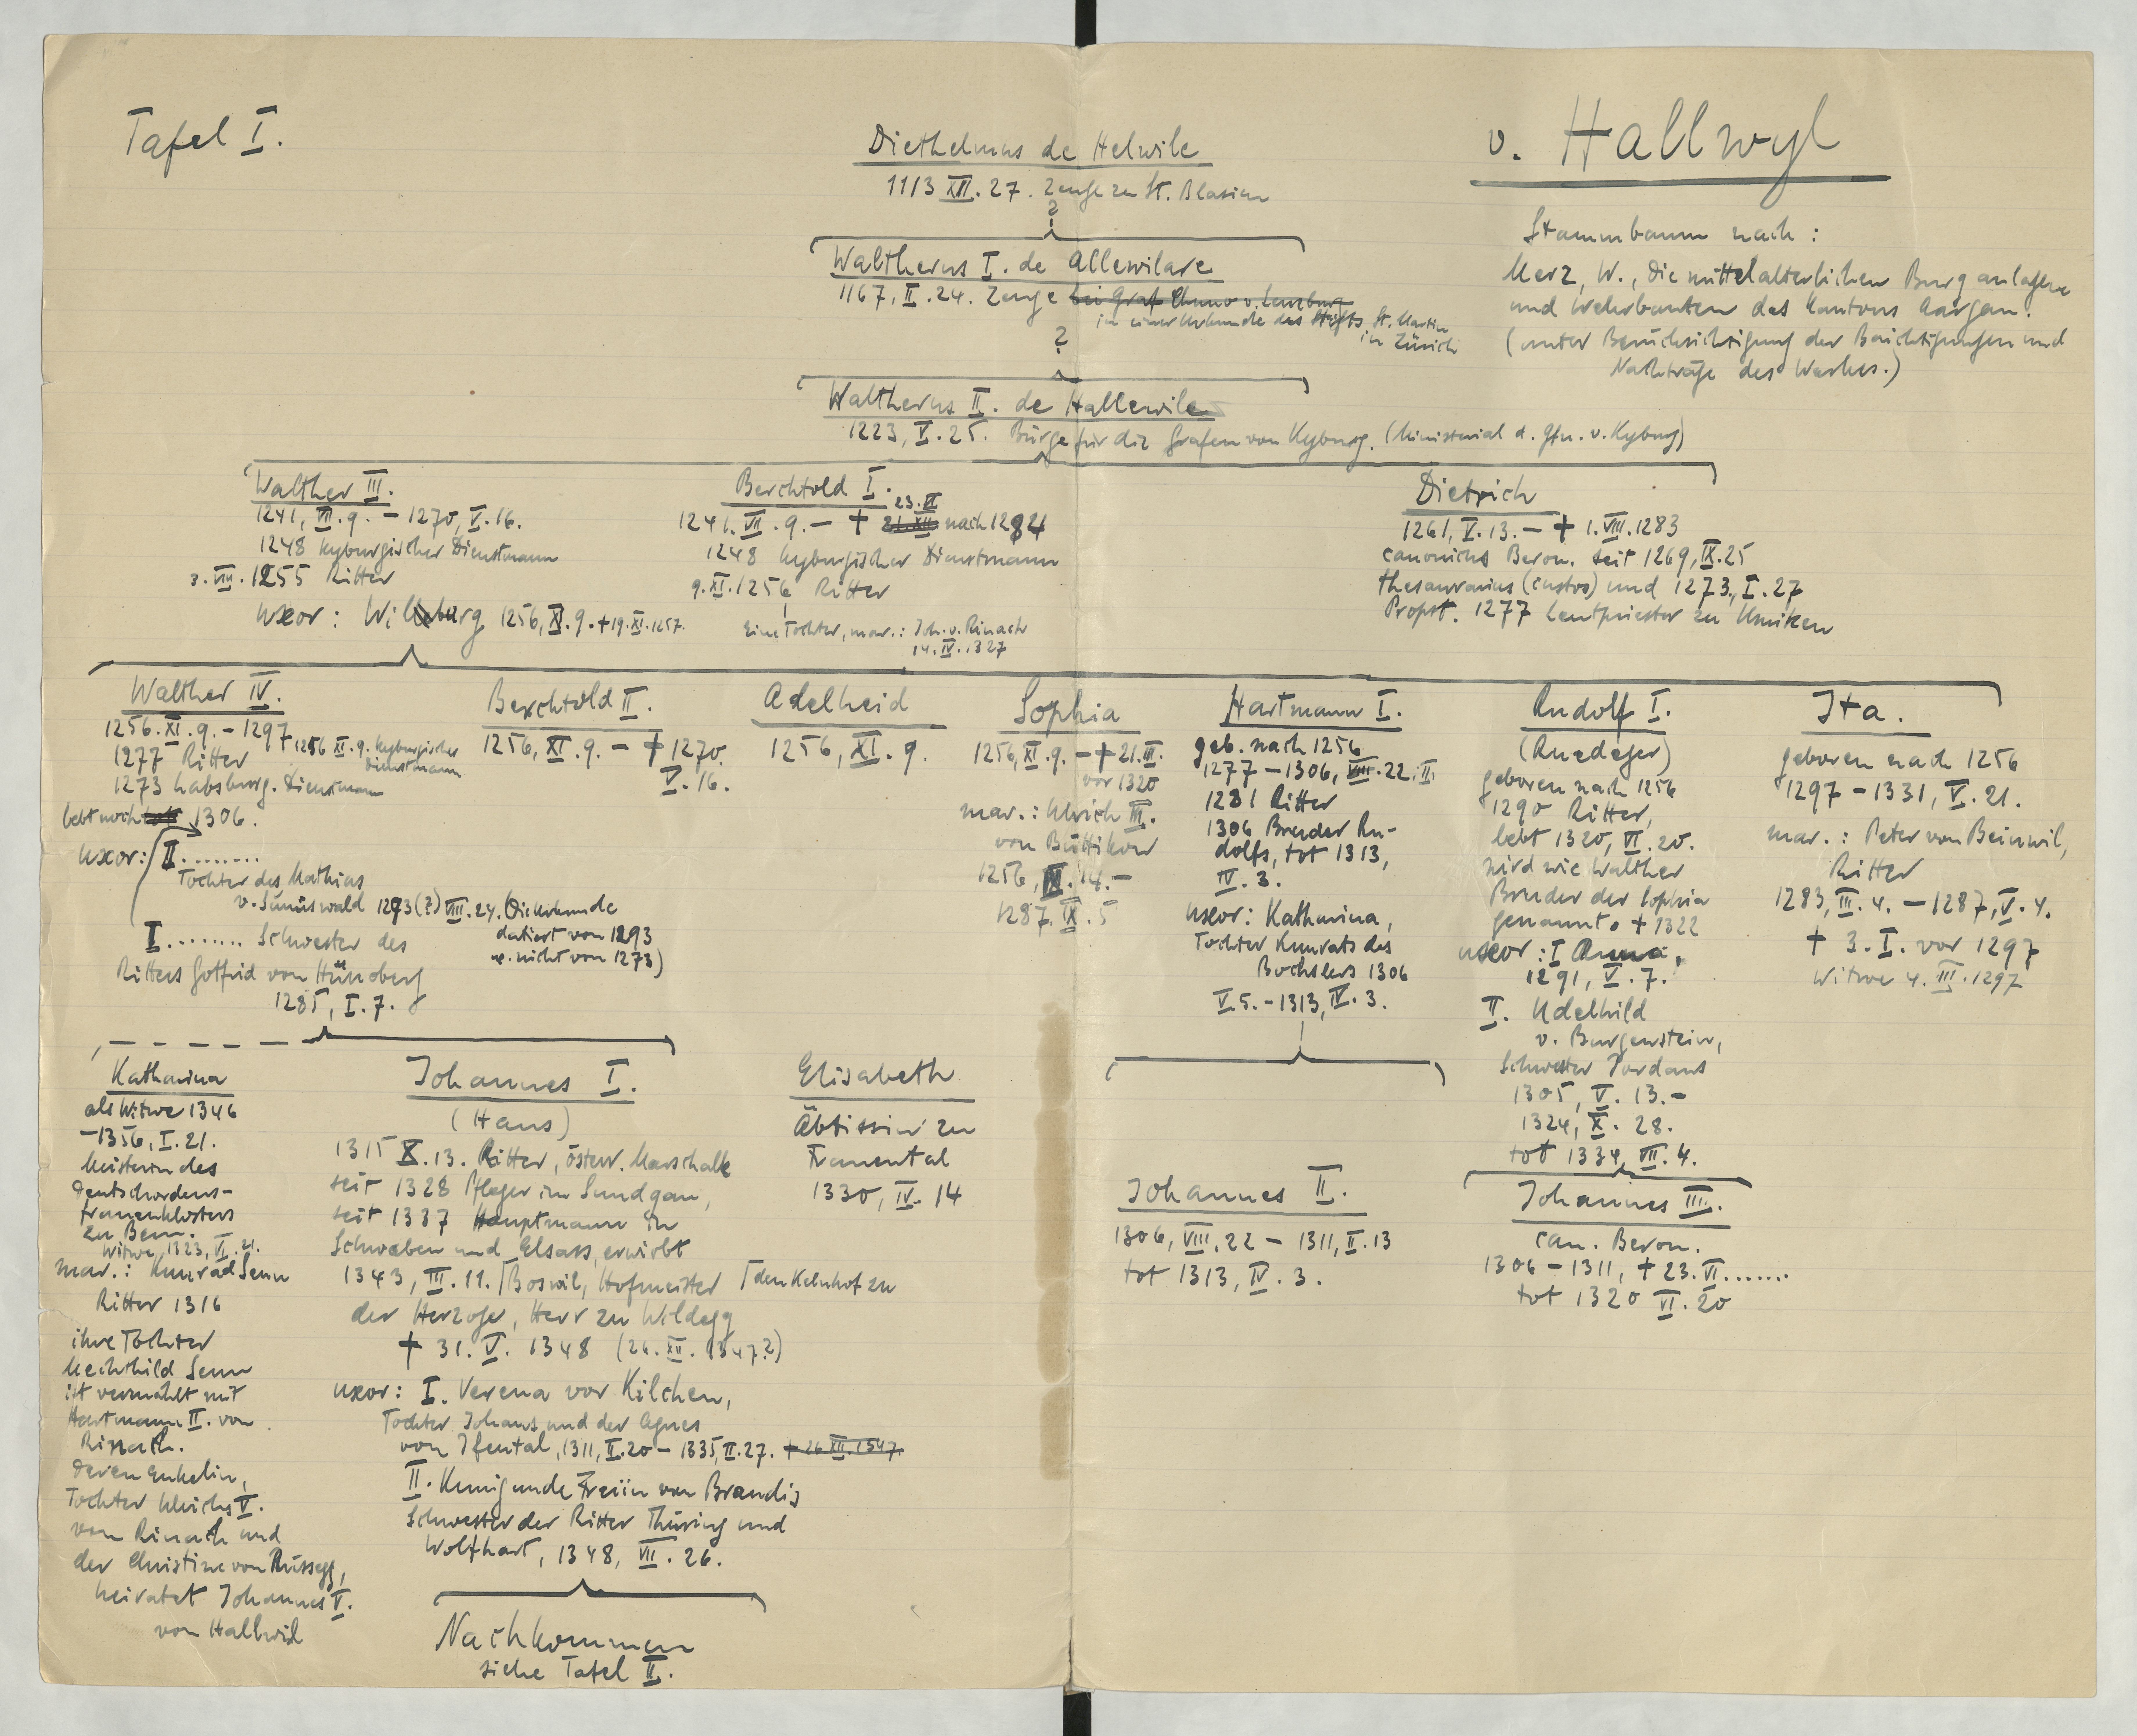 Tafel I.
v. Hallwyl
Stammbaum nach :
Merz, W., Die mittelalterlichen Burganlagen
und Wehrbauten des Kantons Aargau.
(unter Berücksichtigung der Berichtigungen und
Nachträge des Werkes.)
Diethelmus de Helwile
1113 XII. 27. Zeuge zu St. Blasien
?
Waltherus I. de Allewilare
1167, II. 24. Zeuge bei Graf Chuno v. Lenzburg
in einer Urkunde des Stifts St. Martin
in Zürich
?
Waltherus II. de Hallewile
1223, V. 25. Bürge für die Grafen von Kyburg. (Ministerial d. Gfn. v. Kyburg)
Walther III.
1241, VII. 9. – 1270, V. 16.
1248 kyburgischer Dienstmann
3. VIII. 1255 Ritter
uxor: Willburg 1256, XI. 9. + 19. XI. 1257.
Berchtold I.
23. VI
1241. VII. 9. – † 21. XII nach 1284
1248 kyburgischer Dienstmann
9. XI. 1256 Ritter
Eine Tochter, mar.: Joh. v. Rinach
14. IV. 1327
Dietrich
1261, V. 13. – † 1. VIII. 1283
canonicus Beron. seit 1269, IX. 25
thesaurarius (custos) und 1273, I. 27
Propst. 1277 Leutpriester zu Umiken
Walther IV.
1256. XI. 9. – 1297
1256 XI. 9. kyburgischer
Dienstmann
1277 Ritter
1273 habsburg. Dienstmann
lebt noch 1306.
uxor: II. ........
Tochter des Mathias
v. Sumiswald 1293 (?) VIII. 24. (Die Urkunde
datiert von 1293
u. nicht von 1273)
I. ........ Schwester des
Ritters Gotfrid von Hünoberg
1285, I. 7.
Berchtold II.
1256, XI. 9. – † 1270.
V. 16.
Adelheid
1256, XI. 9.
Sophia
1256, XI. 9. – † 21. III.
vor 1320
mar.: Ulrich III.
von Büttikon
1256, IX. 14. –
1287. IX. 5
Hartmann I.
geb. nach 1256
1277 – 1306, VIII. 22. II.
1281 Ritter
1306 Bruder Ru-
dolfs, tot 1313,
IV. 3.
uxor: Katharina,
Tochter Kunrats des
Bochslers 1306
V. 5. – 1313, IV. 3.
Rudolf I.
(Ruedeger)
geboren nach 1256
1290 Ritter,
lebt 1320, VI. 20.
wird wie Walther
Bruder der Sophia
genannt. † 1322
uxor: I Anna,
1291, V. 7.
II. Udelhild
v. Burgenstein,
Schwester Jordans
1305, V. 13. –
1324, X. 28.
tot 1334, VII. 4.
Ita.
geboren nach 1256
1297 – 1331, V. 21.
mar.: Peter von Beinwil,
Ritter
1283, III. 4. – 1287, V. 4.
† 3. I. vor 1297
Witwe 4. III. 1297
Katharina
als Witwe 1346
– 1356, I. 21.
Meisterin des
Deutschordens-
frauenklosters
zu Bern.
Witwe 1323, VI. 21.
mar.: Kunrad Senn
Ritter 1316
ihre Tochter
Mechthild Senn
ist vermählt mit
Hartmann II. von
Rinach.
Deren Enkelin,
Tochter Ulrichs V.
von Rinach und
der Christine von Rüssegg,
heiratet Johannes V.
von Hallwil
Johannes I.
(Hans)
1315 X. 13. Ritter, österr. Marschalk
seit 1328 Pfleger im Sundgau,
seit 1337 Hauptmann in
Schwaben und Elsass, erwirbt
1343, III. 11. ⌈Boswil, Hofmeister ⌈den Kelnhof zu
der Herzoge, Herr zu Wildegg
† 31. V. 1348 (26. XII. 1347?)
uxor: I. Verena vor Kilchen,
Tochter Johans und der Agnes
von Ifental, 1311, II. 20 – 1335, II. 27. + 26 XII. 1347.
II. Kunigunde Freiin von Brandis
Schwester der Ritter Thüring und
Wolfhart, 1348, VII. 26.
Nachkommen
siehe Tafel II.
Elisabeth
Äbtissin zu
Frauental
1330, IV. 14
Johannes II.
1306, VIII, 22 – 1311, II. 13
tot 1313, IV. 3.
Johannes III.
can. Beron.
1306 – 1311, † 23. VI. ......
tot 1320 VI. 20